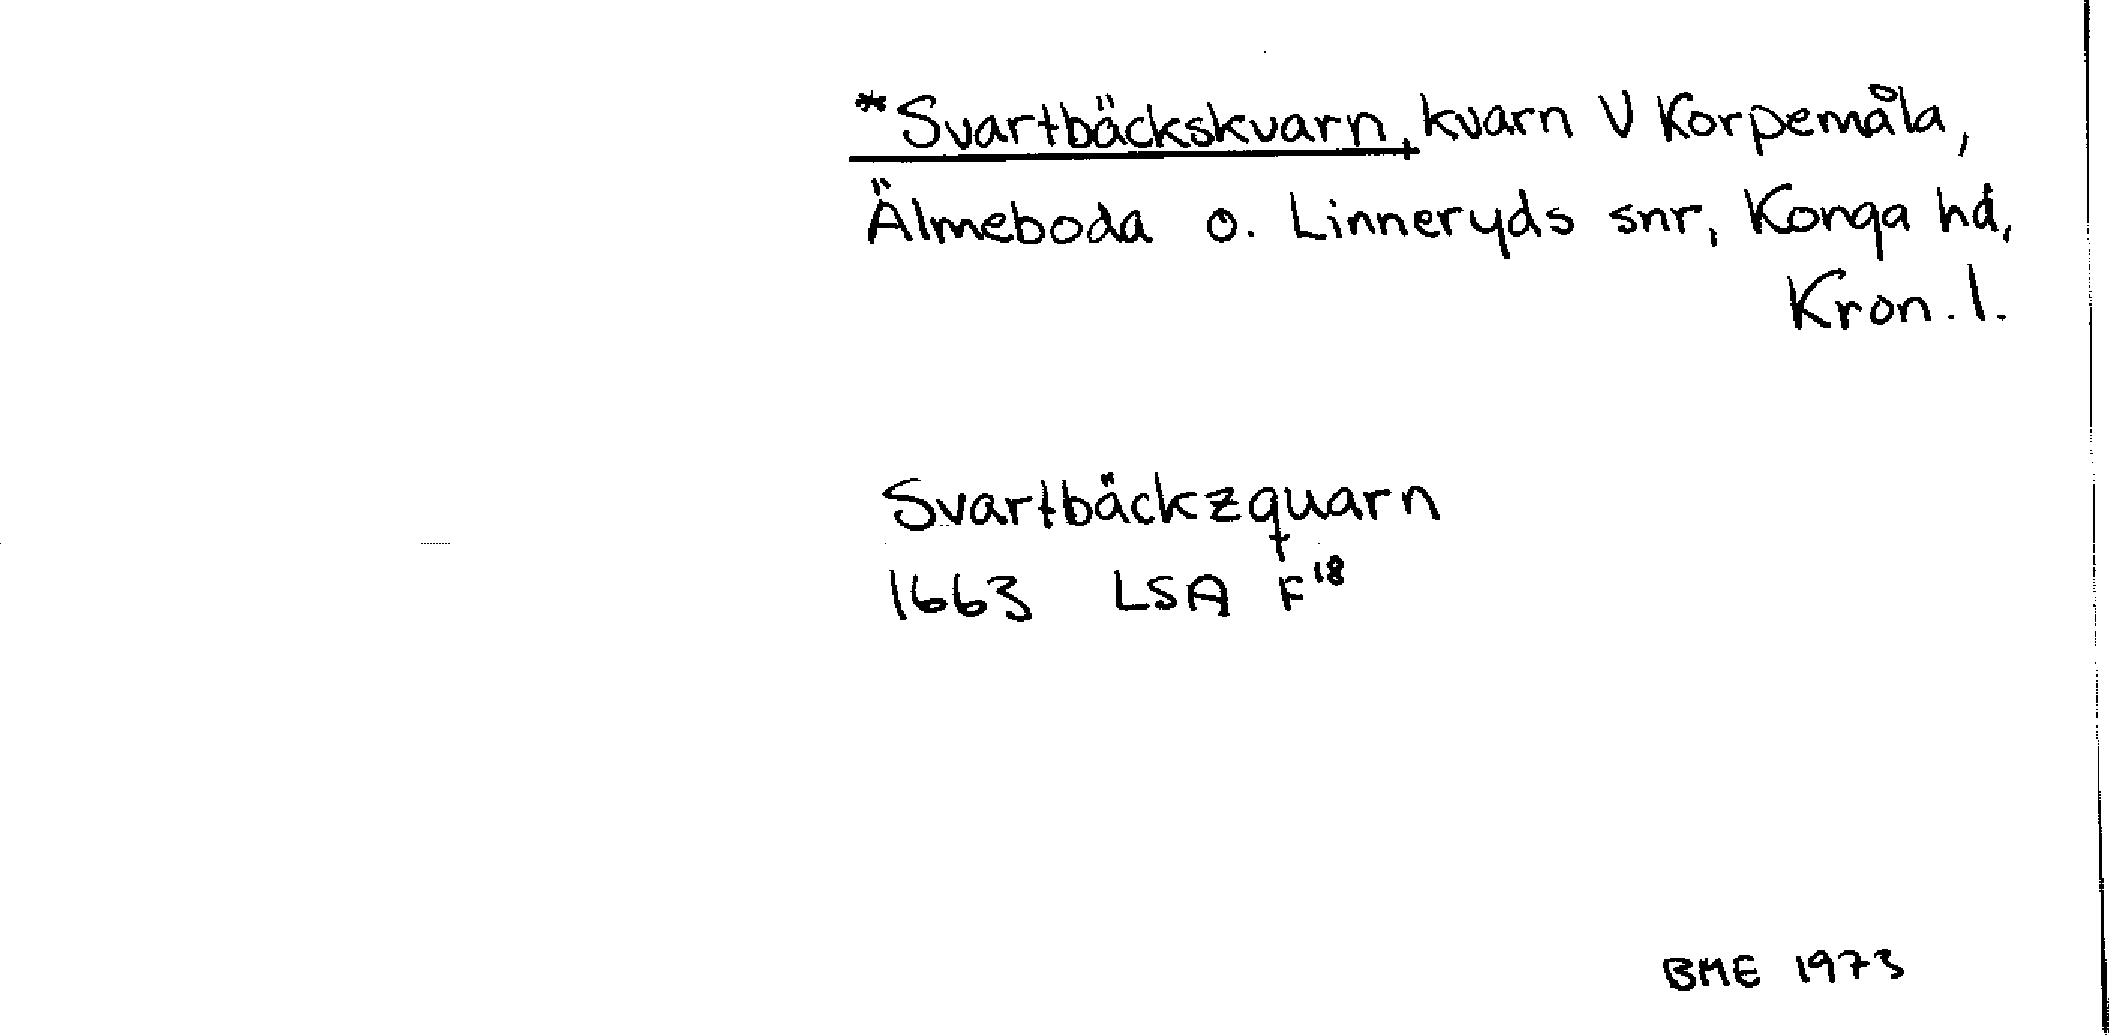 *Svartbäckskvarn, kvarn V Korpemåla,
Älmeboda o. Linneryds snr, Konga hd,
Kron. l.
Svartbäckzquarn
1663 LSA F18
BME 1973